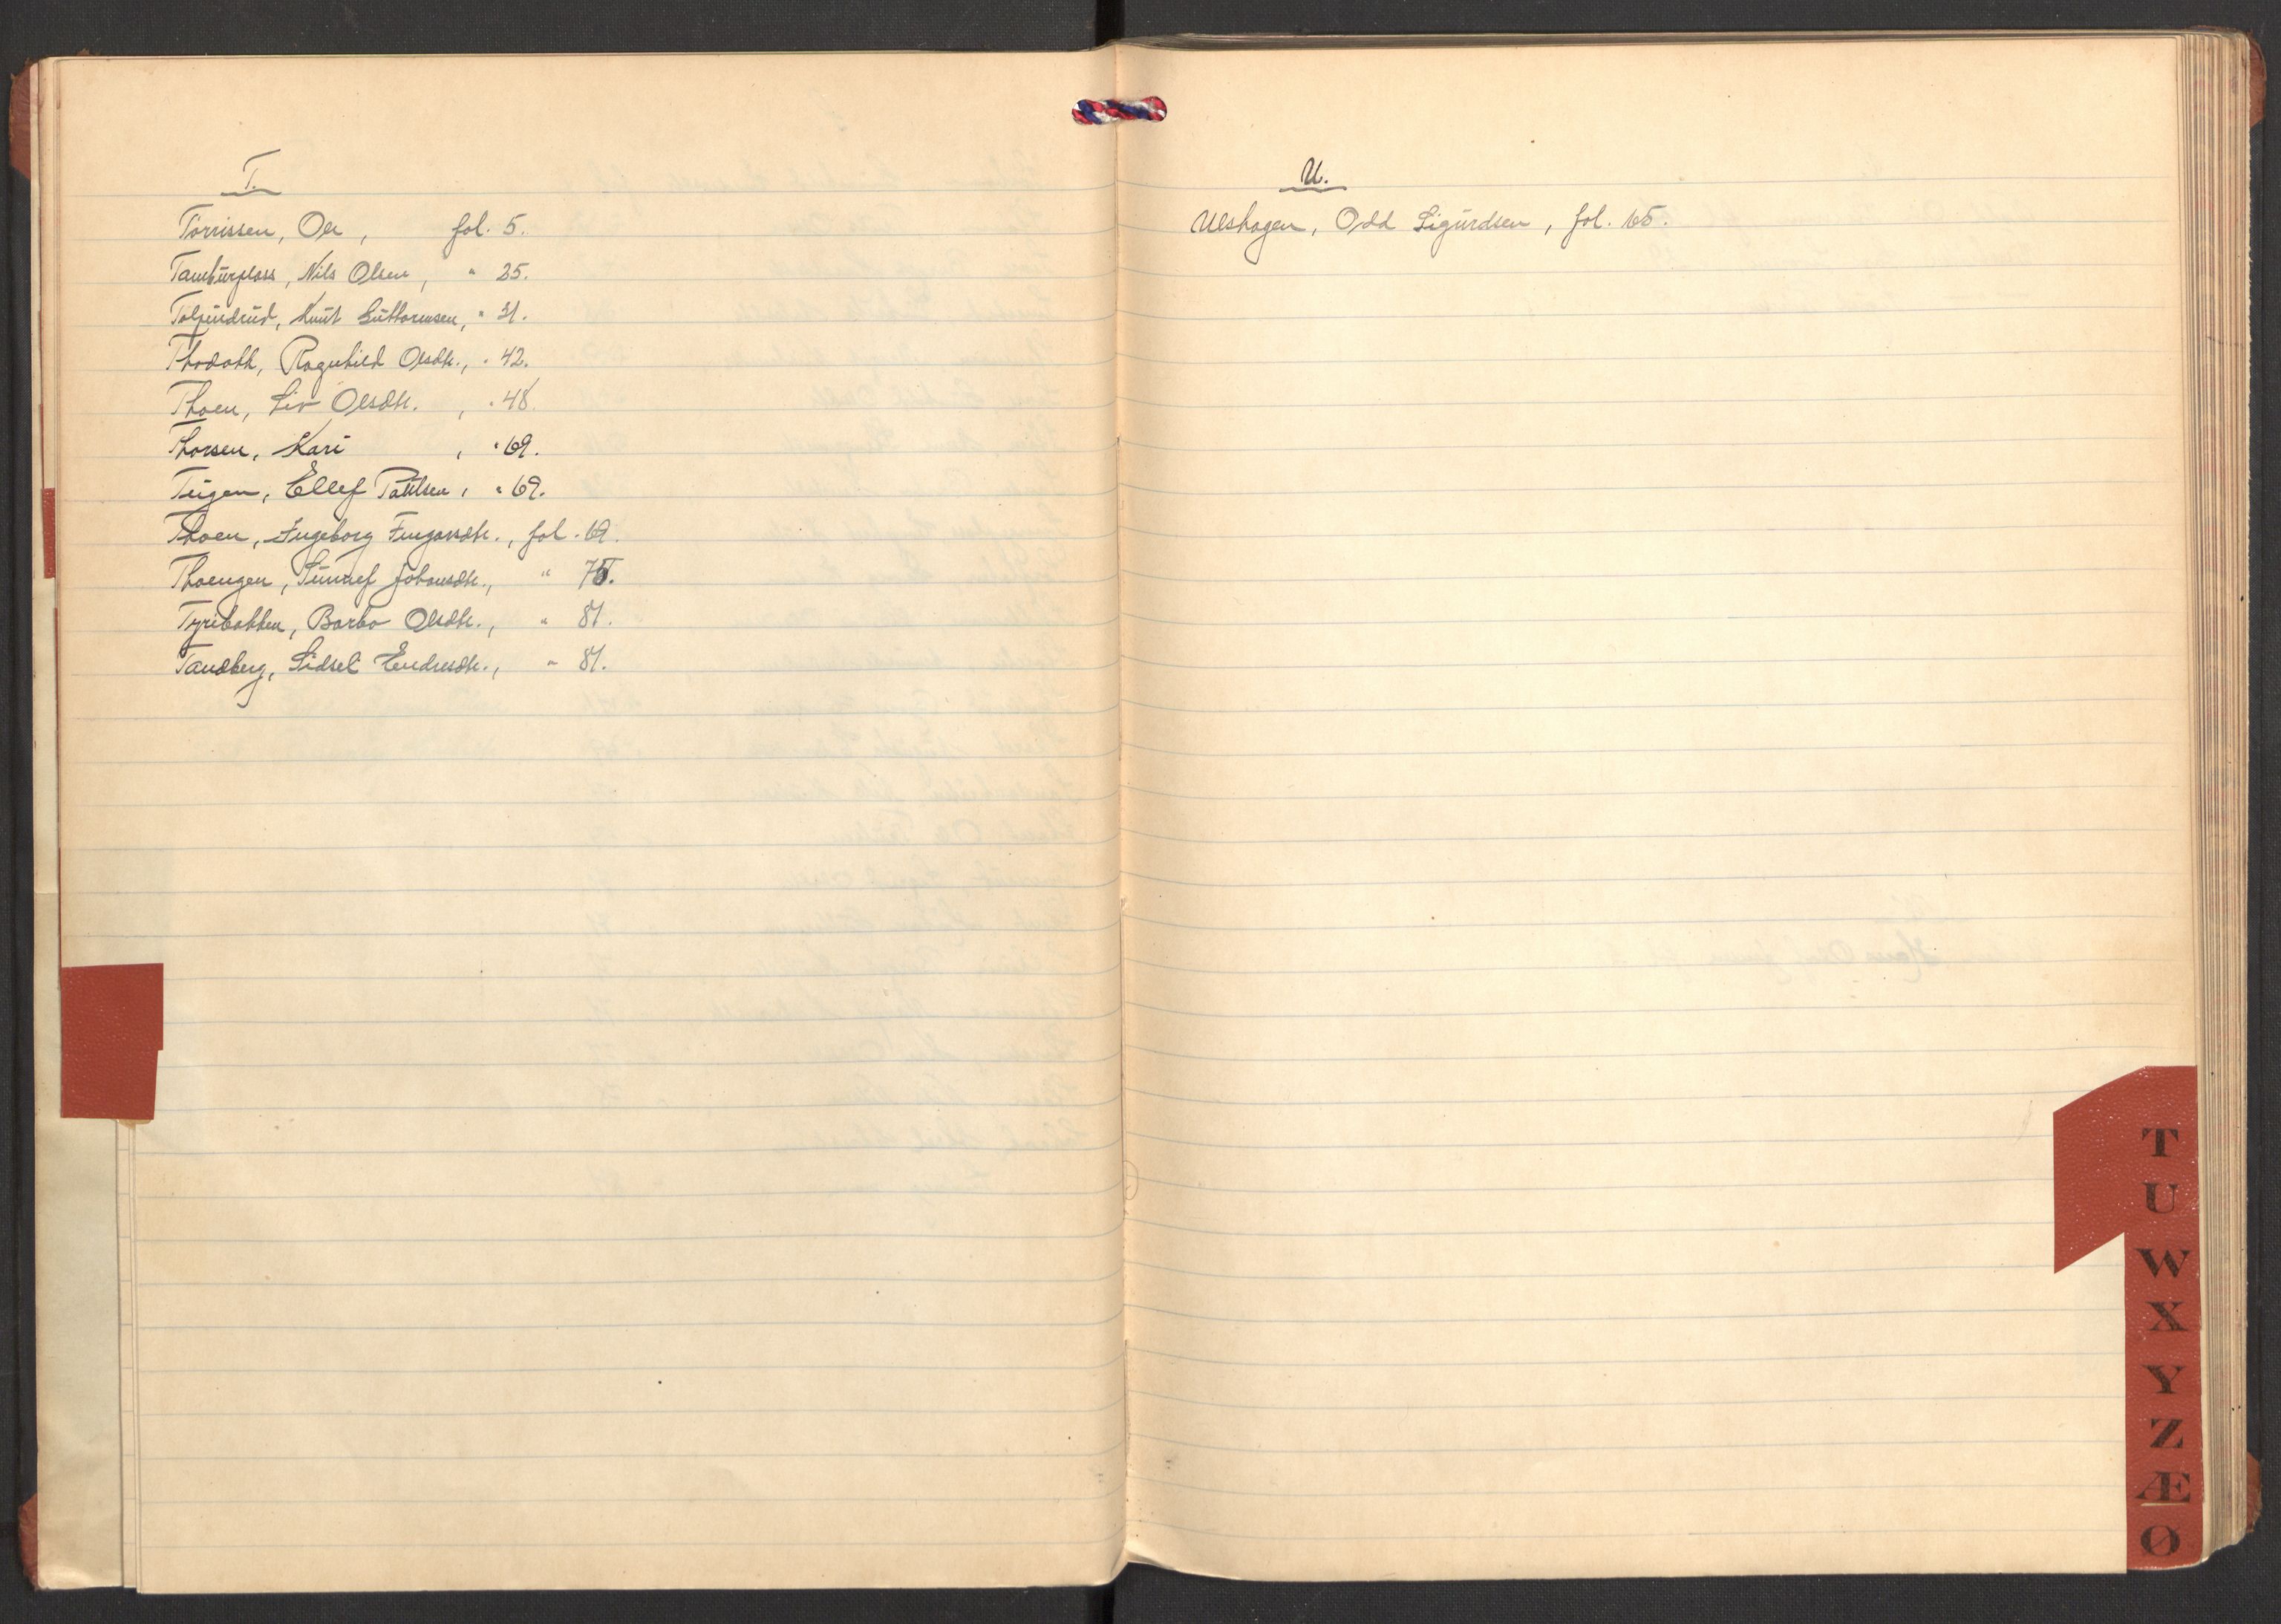 T.
Torrissen, Ole, fol. 5.
Tamburplass, Nils Olsen, " 25.
Tolpinrud, Knut Guttormsen, " 31.
Thodokk, Ragnhild Olsdtr., " 42.
Thoen, Liv Olsdtr., " 48.
Thorsen, Kari, " 69.
Teigen, Ellef Paulsen, " 69.
Thoen, Ingeborg Fingarsdtr., fol. 69.
Thoengen, Sunnef Johansdtr., " 75.
Tyribakken, Barbo Olsdtr., " 81.
Tandberg, Sidsel Endresdtr., " 81.
U.
Ulshagen, Odd Sigurdsen, fol. 65.
T
U
W
X
Y
Z
Æ
Ø